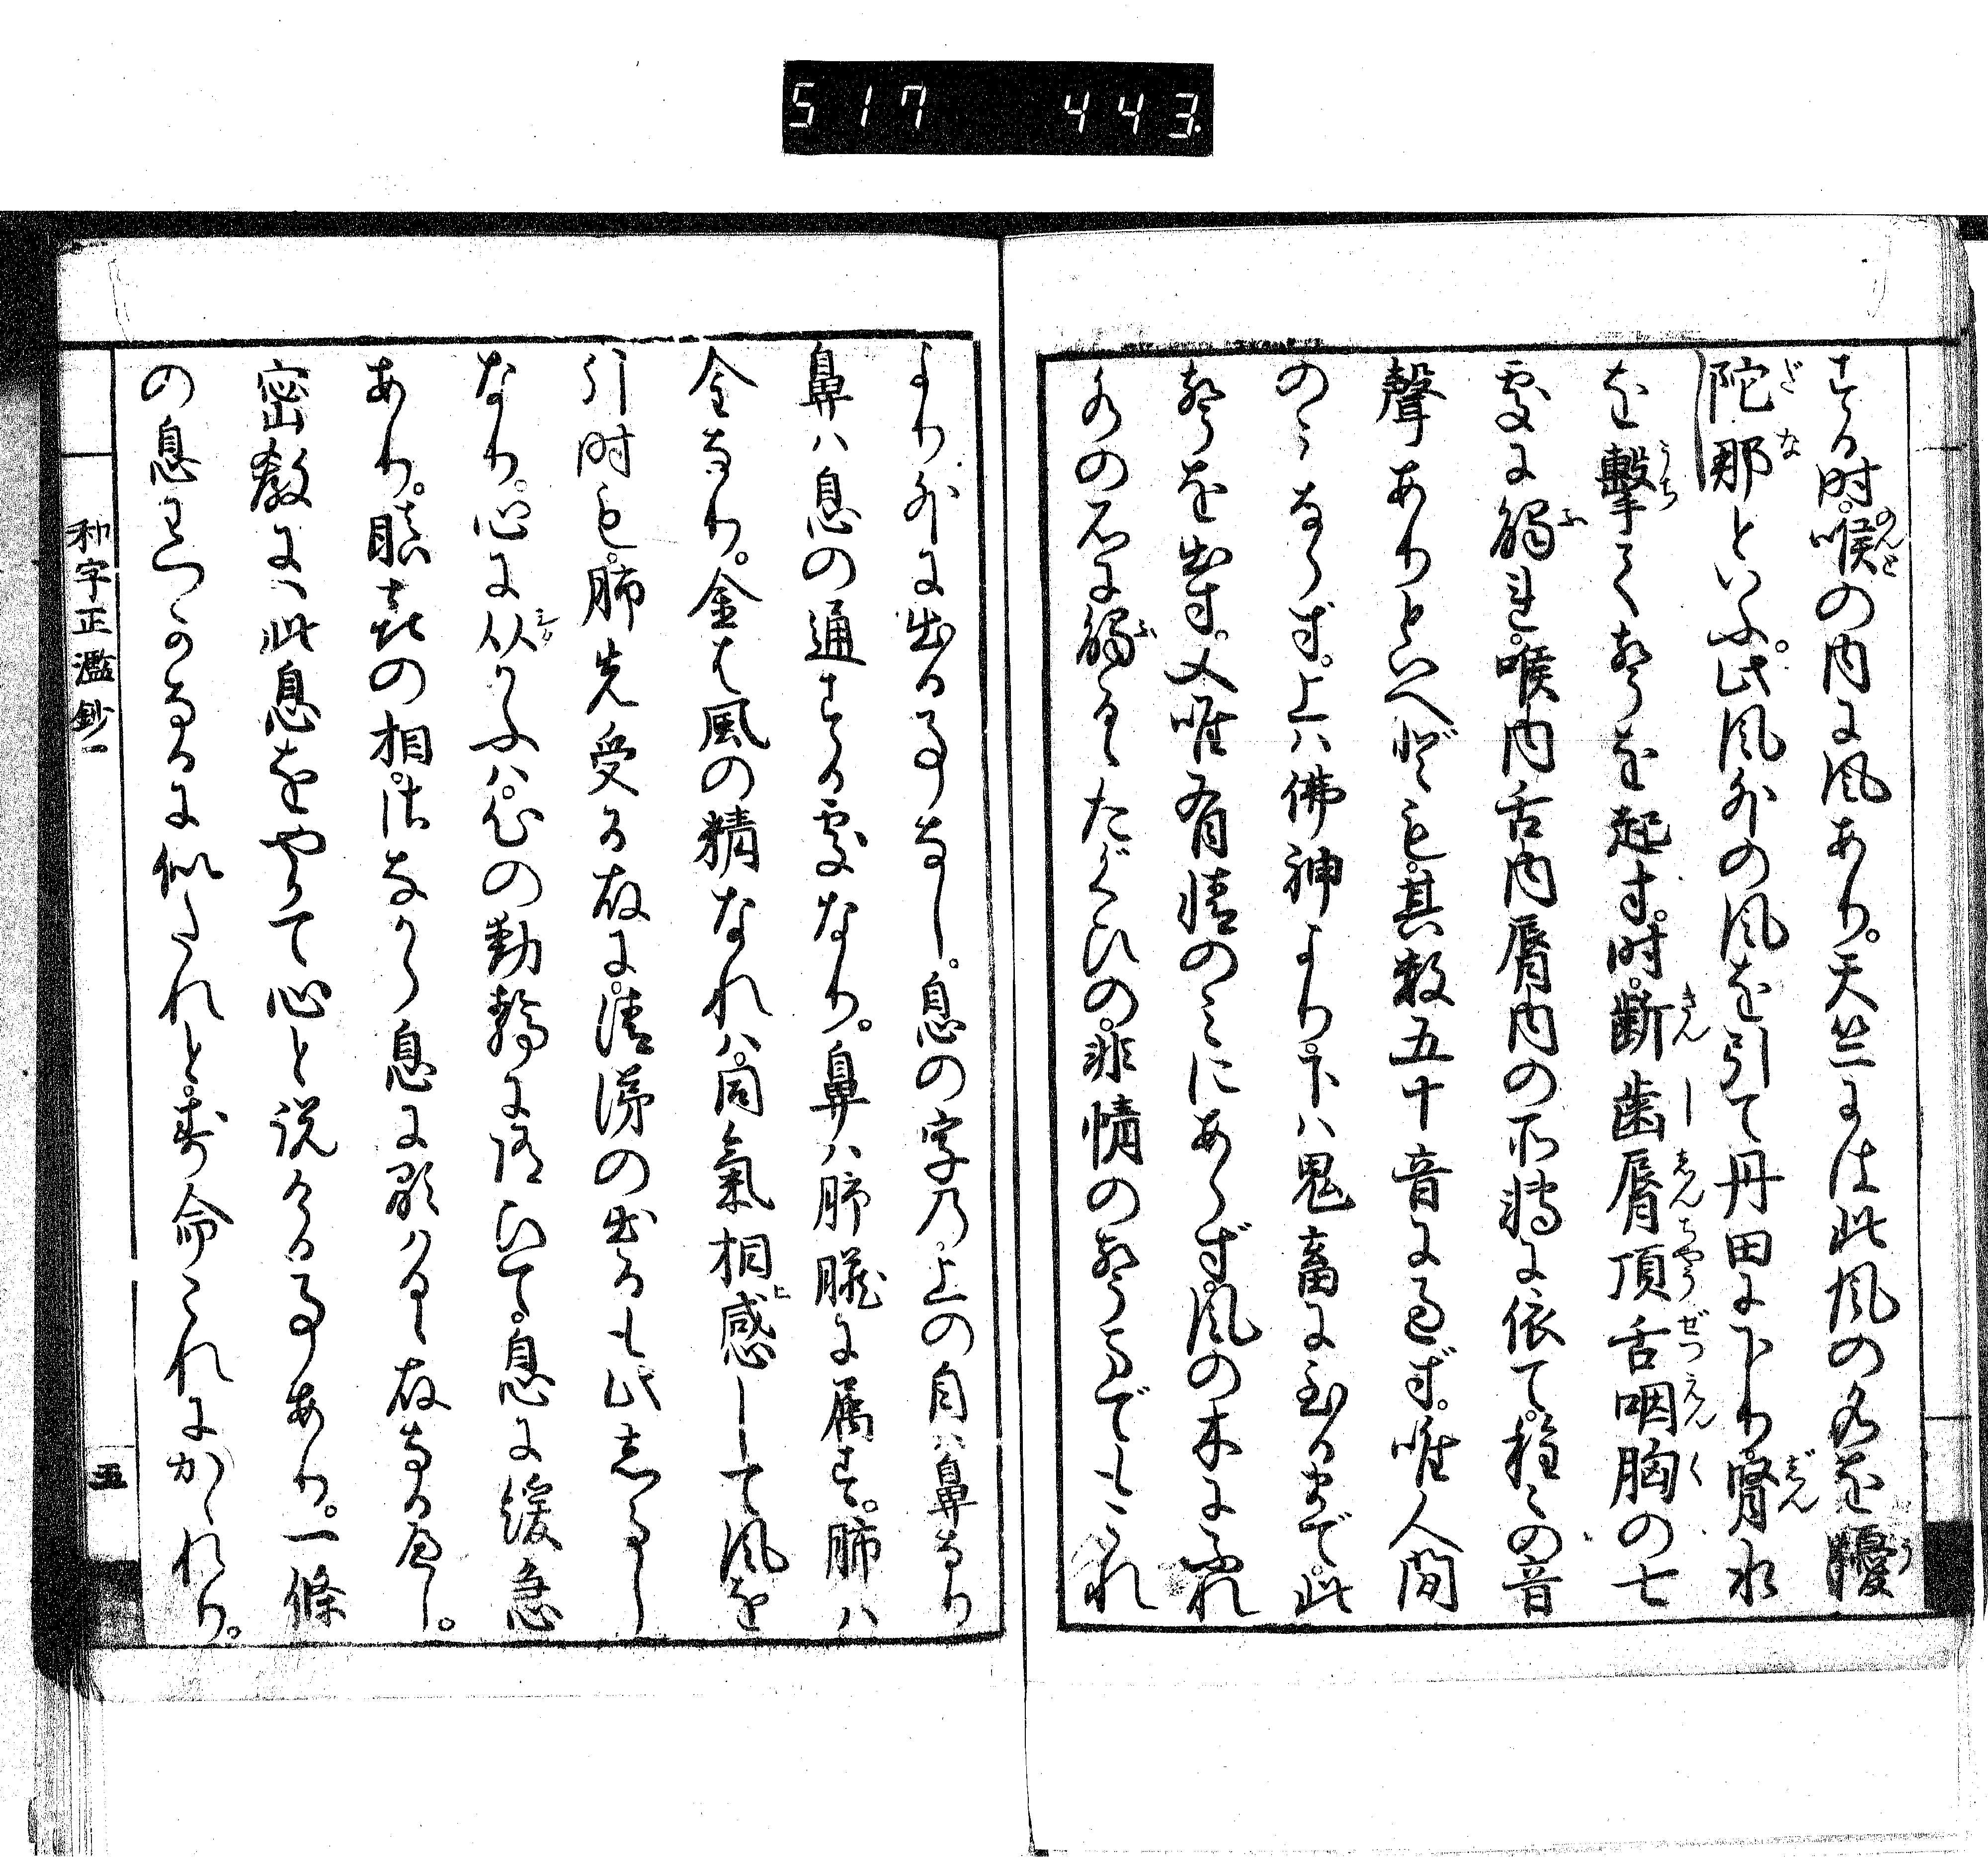 517 443
する時。喉の内に風あり。天竺には此風の名を優
陀那といふ。此風外の風を引て丹田に下り腎水
を撃て聲を起す。時。齗歯脣頂舌咽胸の七
處に觸れ。喉内舌内脣内の所轉に依て。種々の音
聲ありといへども。其数五十音に過ず。唯人間
のみならず。上ハ佛神より。下ハ鬼畜に至るまで。此
聲を出す。又唯有情のみにあらず。風の木にふれ
水の石に觸るゝたぐひの。非情の聲までもこれ
より外に出る事なし。息の字乃上の自ハ鼻なり
鼻ハ息の通する處なり。鼻ハ肺臓に属す。肺ハ
金なり。金は風の精なれハ。同氣相感して風を
引時も。肺先受る故に。洟涕の出るも此しるし
なり。心に从かふハ。心の動静に随ひて。息に緩急
あり。瞋恚の相。さなから息に顕ハるゝ故なるへし。
密教にハ此息をやかて心と説ける事あり。一條
の息わつかなるに似たれと。壽命これにかゝれり。
和字正濫鈔一
五